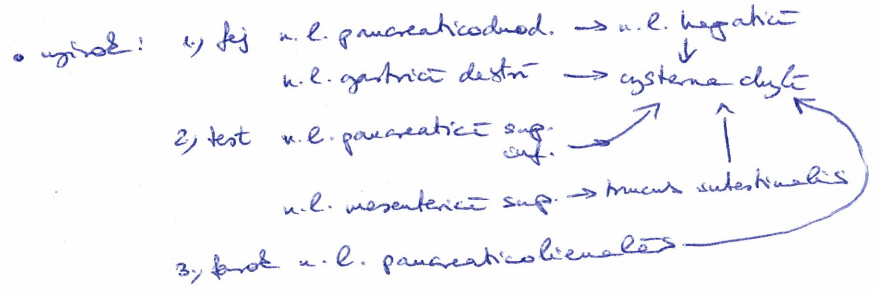 • nyirok: 1.) fej n.l. pancreaticoduod. → n.l. hepatici
↓
n.l. gastrici dextri → cysterna chyli
2.) test n.l. pancreatici sup.
inf. →
n.l. mesenterici sup. → truncus intestinalis
3.) farok n.l. pancreaticolienales